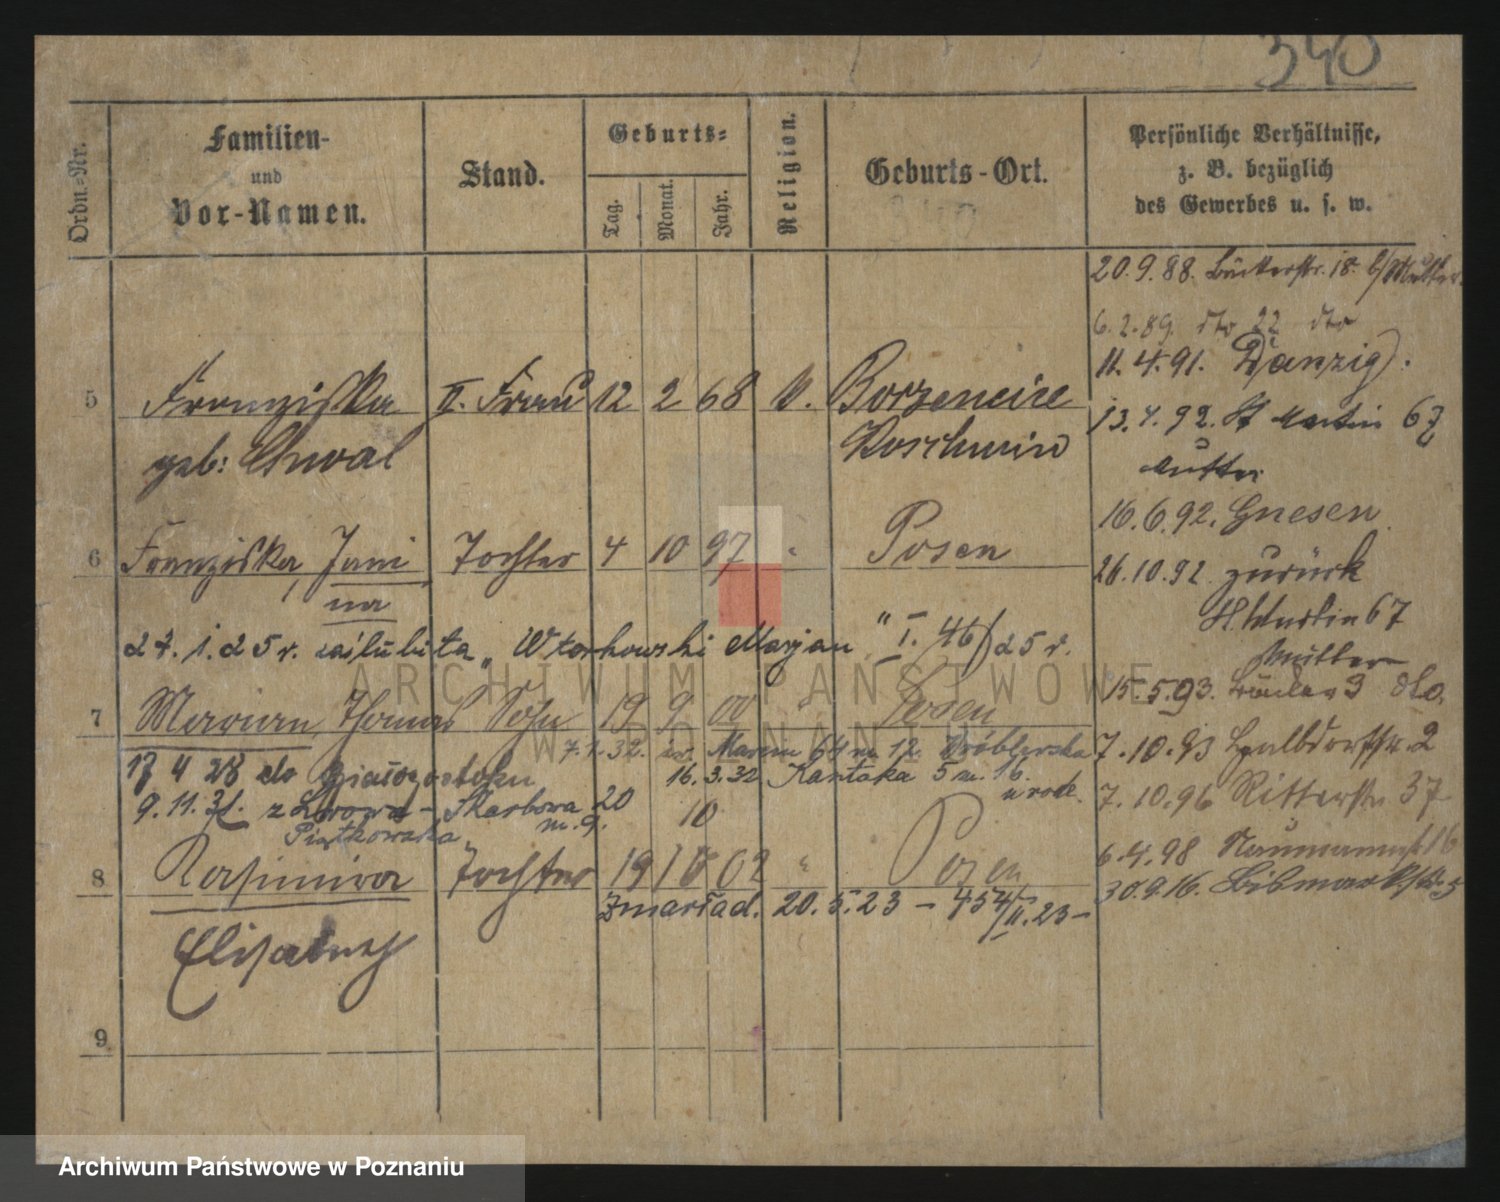 340
Ordn.-Nr.
Familien-
und
Vor-Namen.
Stand.
Geburts-
Tag.
Monat.
Jahr.
Religion.
Geburts-Ort.
Persönliche Verhältnisse,
z. B. bezüglich
des Gewerbes u. s. w.
20.9.88. Bäckerstr. 18. b/Mutter
6.2.89. dto 22 dto
11.4.91. Danzig.
5 Franziska II. Frau 12 2 68 Borzencice
geb: Chwal Koschmin
13.4.92. St Martin 67
Mutter
16.6.92. Gnesen.
6 Franziska, Jani Tochter 4 10 97 " Posen
na
26.10.92 zurück
St. Martin 67
Mutter
27.1.25 r. zaślubiła " Wtorkowski Marjan " I. 46/25 r.
15.5.93. 3 dto.
7 Marian, Thomas Sohn 19 9 00 " Posen
7.10.93 Halbdorfstr. 2
17 4 28 do Białegostoku
16.3.32. Kantaka 5 m. 16.
9.11.31. z Lwowa - Skarbowa 20
m. 9.
Piątkowska
7.10.96 Ritterstr. 37
8 Kasimira Tochter 19 10 02 " Posen
10
6.4.98 Naumannst. 16
30.9.16. Bismarckstr. 5
Zmarła d. 20.5.23 - 454/II.23 -
Elisabeth
9
ARCHIWUM PAŃSTWOWE
W POZNANIU
Archiwum Państwowe w Poznaniu